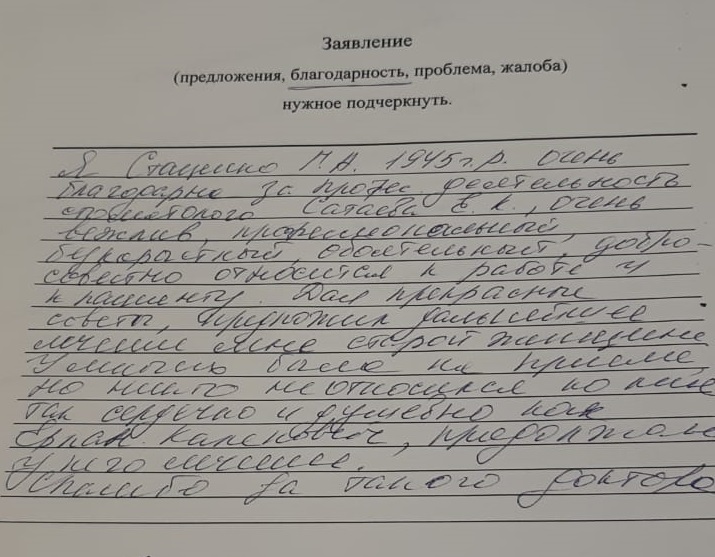 Заявление
(предложения, благодарность, проблема, жалоба)
нужное подчеркнуть.
Я Стаценко П.А. 1945 г.р. очень
благодарна за профес. деятельность
стоматолога Сатаева Е.К., очень
вежлив, професиональный,
бескорыстный, обоятельный, добро-
совестно относится к работе и
к пациенту. Дал прекрасные
советы, предложил дальнейшее
лечение мне старой женщине
У многих была на приеме,
но никто не относился ко мне
так сердечно и душевно как
Капенович, продолжаю
у него лечение.
Спасибо за такого доктора